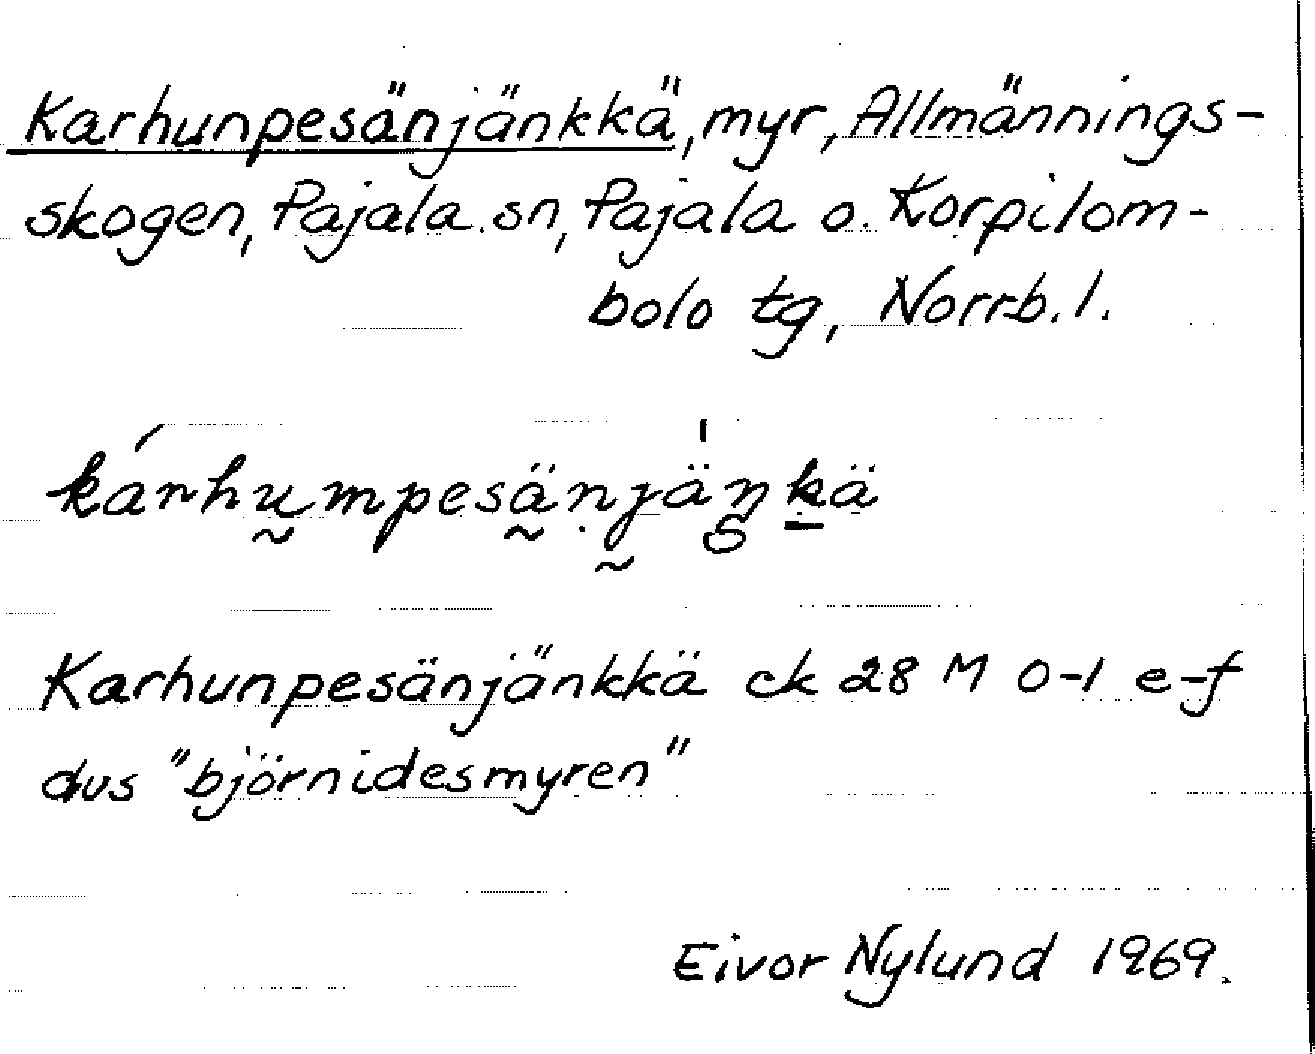 Karhunpesänjänkkä, myr, Allmännings-
skogen, Pajala sn, Pajala o. Korpilom-
bolo tg, Norrb. l.
kárhṵmpesä̰ṇjänkä
Karhunpesänjänkkä ck 28 M 0-1 e-f
dus "björnidesmyren"
Eivor Nylund 1969.